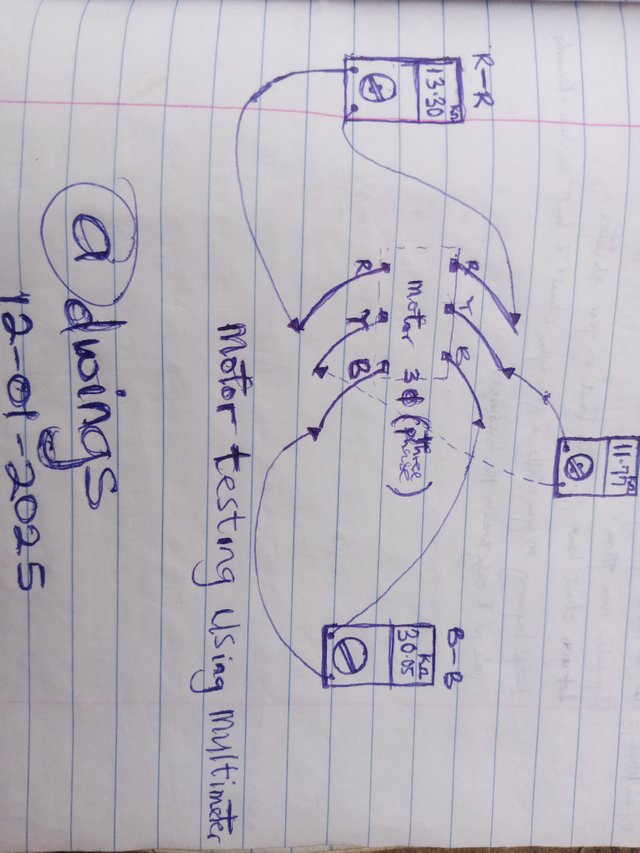 R-R
13.30 KΩ
11.77 KΩ
R Y B
motor 3ϕ (three phase)
R Y B
B-B
KΩ
30.05
Motor testing using multimeter
@dwings
12-01-2025